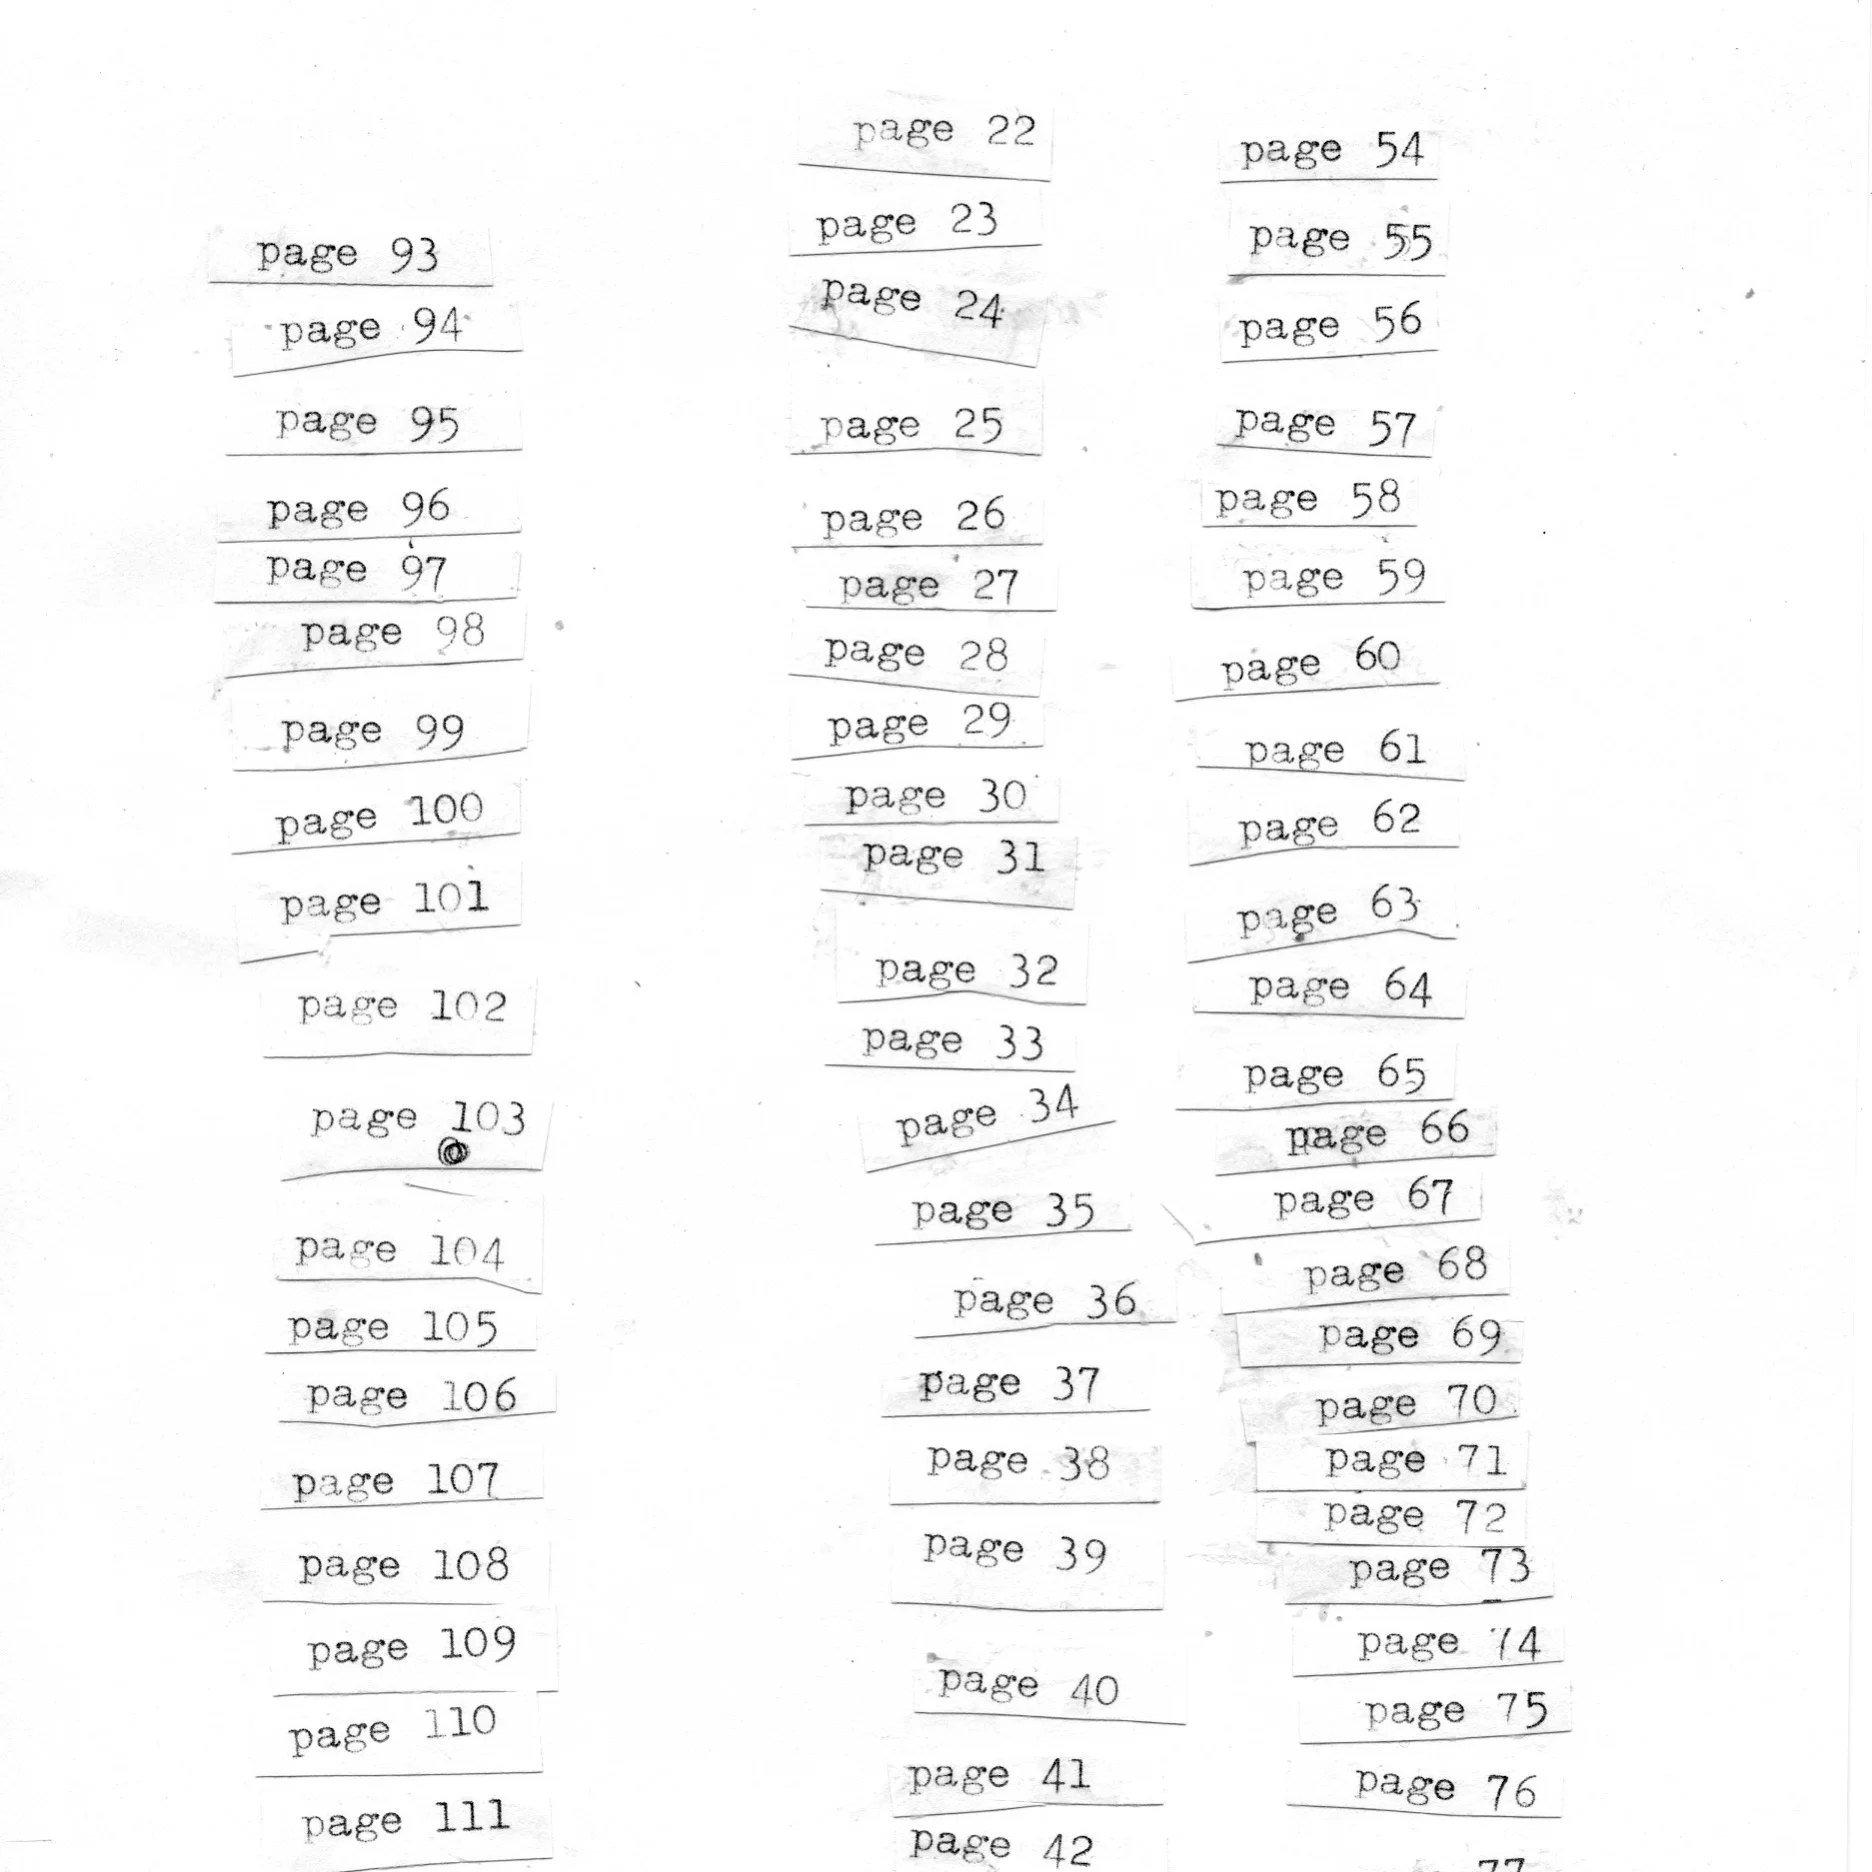 page 93
page 94
page 95
page 96
page 97
page 98
page 99
page 100
page 101
page 102
page 103
page 104
page 105
page 106
page 107
page 108
page 109
page 110
page 111
page 22
page 23
page 24
page 25
page 26
page 27
page 28
page 29
page 30
page 31
page 32
page 33
page 34
page 35
page 36
page 37
page 38
page 39
page 40
page 41
page 42
page 54
page 55
page 56
page 57
page 58
page 59
page 60
page 61
page 62
page 63
page 64
page 65
page 66
page 67
page 68
page 69
page 70
page 71
page 72
page 73
page 74
page 75
page 76